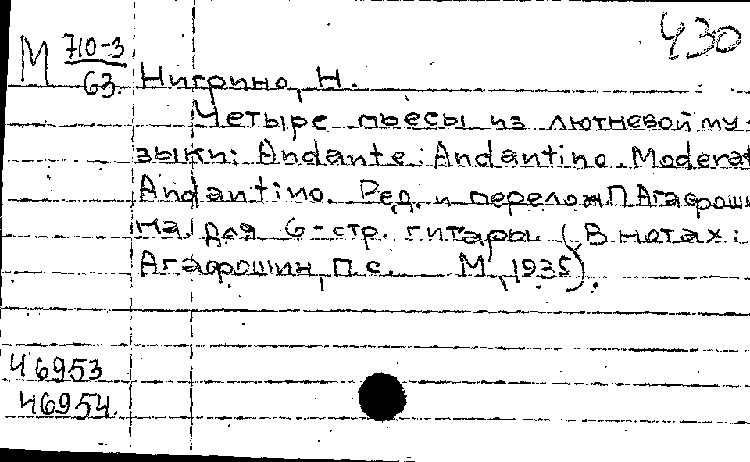 430
М 710-3
63. Нигрино, Н.
Четыре пьесы из лютневой му-
зыки: Andante. Andantino. Moderat
Andantino. Ред. и перелож П. Агафоши
на для 6-стр. гитары. (В нотах:
Агафошин, П.С. М., 1935).
46953
46954.